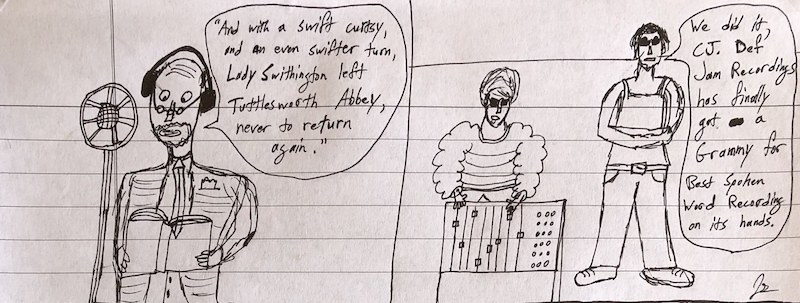 "And with a swift curtsy,
and an even swifter turn,
Lady Swithington left
Tuttlesworth Abbey,
never to return
again."
We did it,
CJ. Def
Jam Recordings
has finally
got a
Grammy for
Best Spoken
Word Recording
on its hands.